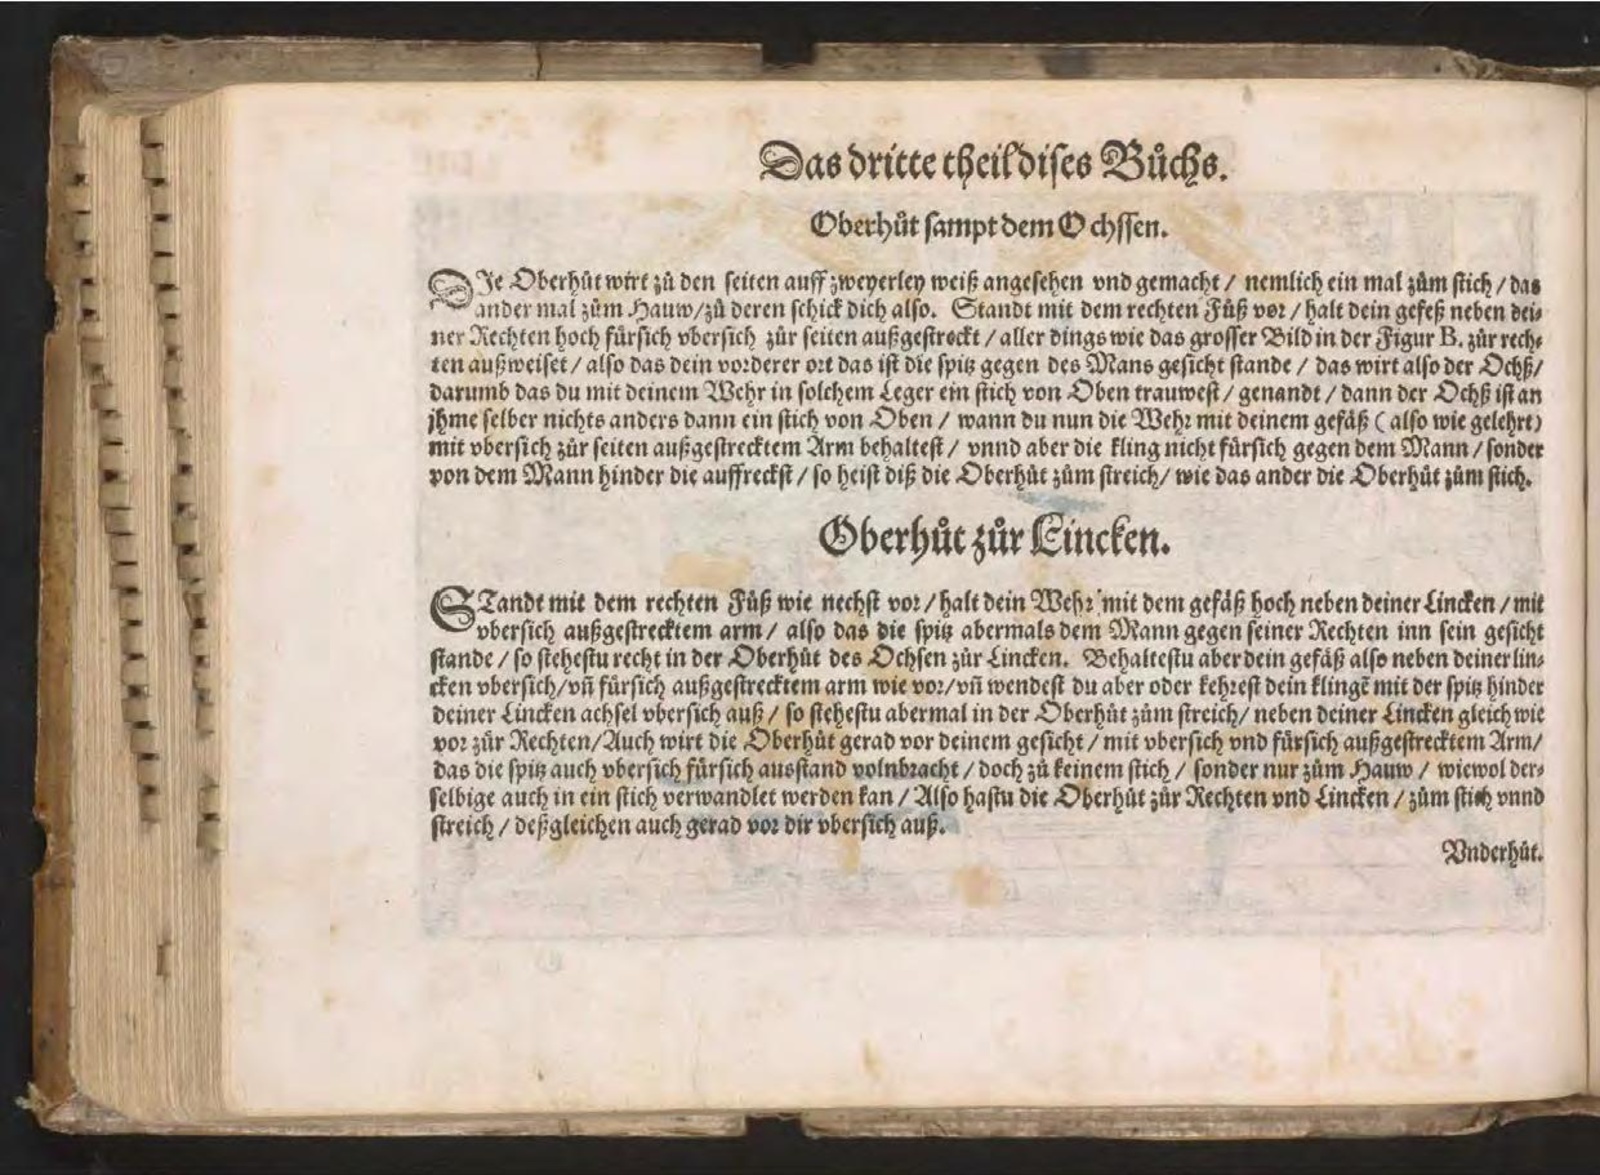 Das dritte theil dises Bůchs.
Oberhůt sampt dem Ochssen.
DIe Oberhůt wirt zů den seiten auff zweyerley weiß angesehen vnd gemacht / nemlich ein mal zům stich / das
ander mal zům Hauw / zů deren schick dich also. Standt mit dem rechten Fůß vor / halt dein gefeß neben dei⸗
ner Rechten hoch fürsich vbersich zůr seiten außgestreckt / aller dings wie das grosser Bild in der Figur B. zůr rech⸗
ten außweiset / also das dein vorderer ort das ist die spitz gegen des Mans gesicht stande / das wirt also der Ochß /
darumb das du mit deinem Wehr in solchem Leger ein stich von Oben trauwest / genandt / dann der Ochß ist an
jhme selber nichts anders dann ein stich von Oben / wann du nun die Wehr mit deinem gefäß ( also wie gelehrt )
mit vbersich zůr seiten außgestrecktem Arm behaltest / vnnd aber die kling nicht fürsich gegen dem Mann / sonder
von dem Mann hinder die auffreckst / so heist diß die Oberhůt zům streich / wie das ander die Oberhůt zům stich.
Oberhůt zůr Lincken.
STandt mit dem rechten Fůß wie nechst vor / halt dein Wehr mit dem gefäß hoch neben deiner Lincken / mit
vbersich außgestrecktem arm / also das die spitz abermals dem Mann gegen seiner Rechten inn sein gesicht
stande / so stehestu recht in der Oberhůt des Ochsen zůr Lincken. Behaltestu aber dein gefäß also neben deiner lin⸗
cken vbersich / vñ fürsich außgestrecktem arm wie vor / vñ wendest du aber oder kehrest dein klingẽ mit der spitz hinder
deiner Lincken achsel vbersich auß / so stehestu abermal in der Oberhůt zům streich / neben deiner Lincken gleich wie
vor zůr Rechten / Auch wirt die Oberhůt gerad vor deinem gesicht / mit vbersich vnd fürsich außgestrecktem Arm /
das die spitz auch vbersich fürsich ausstand volnbracht / doch zů keinem stich / sonder nur zům Hauw / wiewol der⸗
selbige auch in ein stich verwandlet werden kan / Also hastu die Oberhůt zůr Rechten vnd Lincken / zům stich vnnd
streich / deßgleichen auch gerad vor dir vbersich auß.
Vnderhůt.